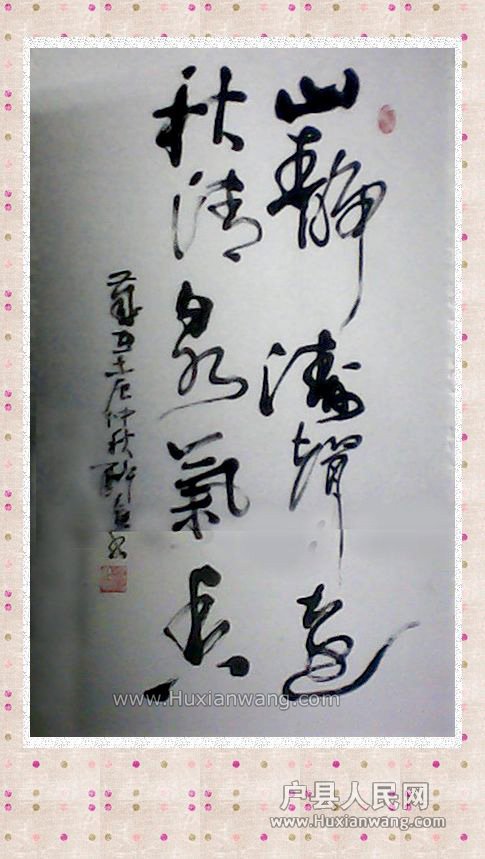 山靜濤聲遠
秋清泉氣香
壬辰仲秋
www.Huxianwang.com
户县人民网
www.Huxianwang.com